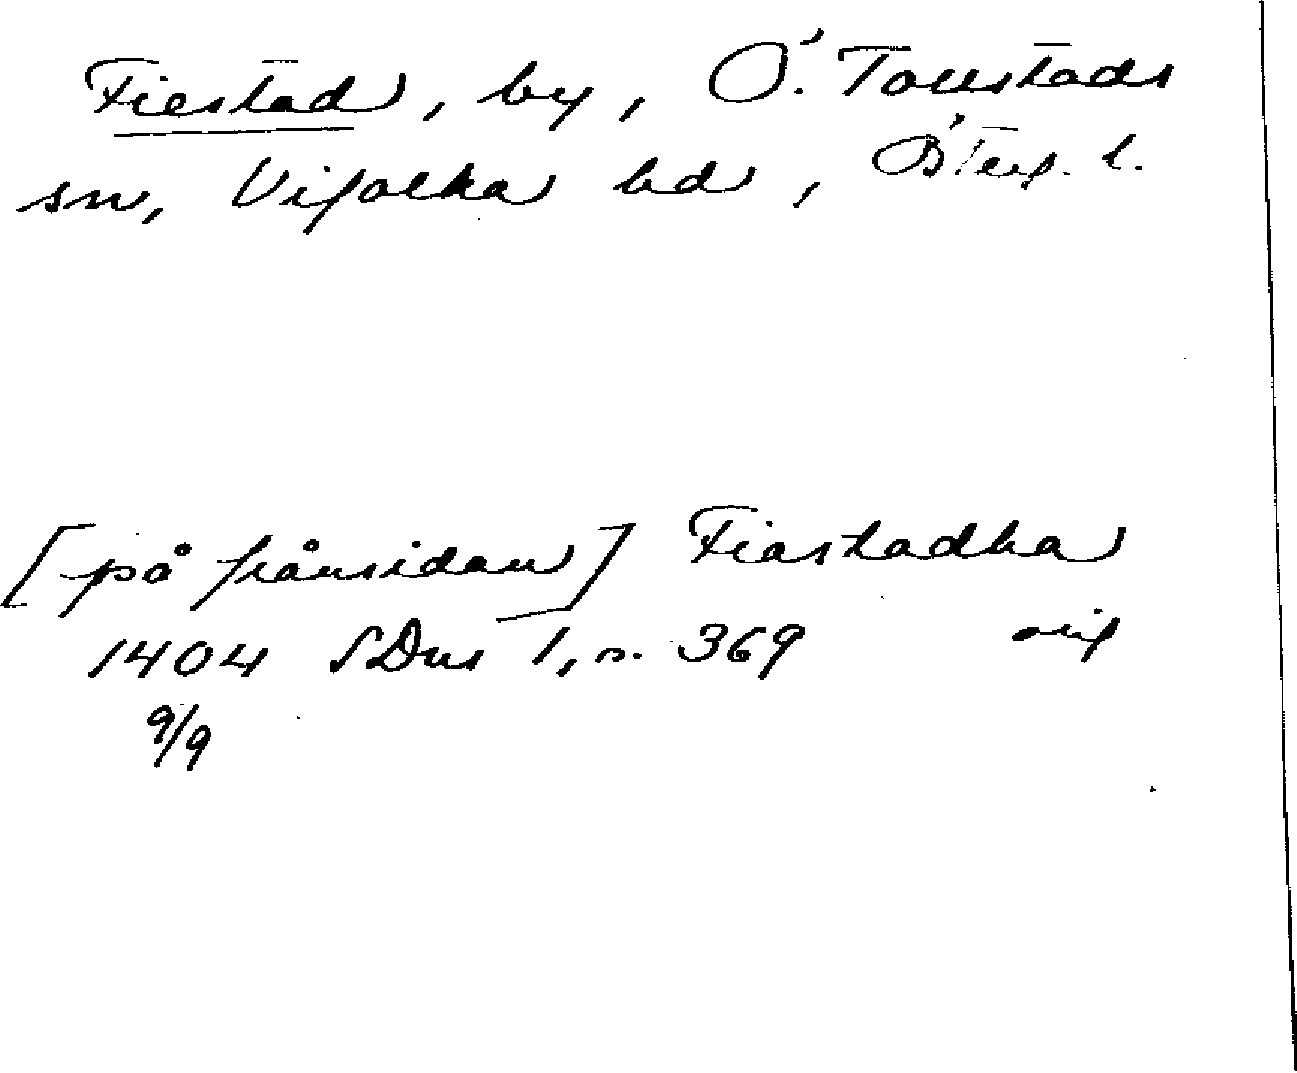 Fiestad, by, Ö. Tollstads
sn, Vifolka hd, Österg. l.
[på frånsidan] Fiastadha
1404 SDns 1, s. 369 orig
9/9